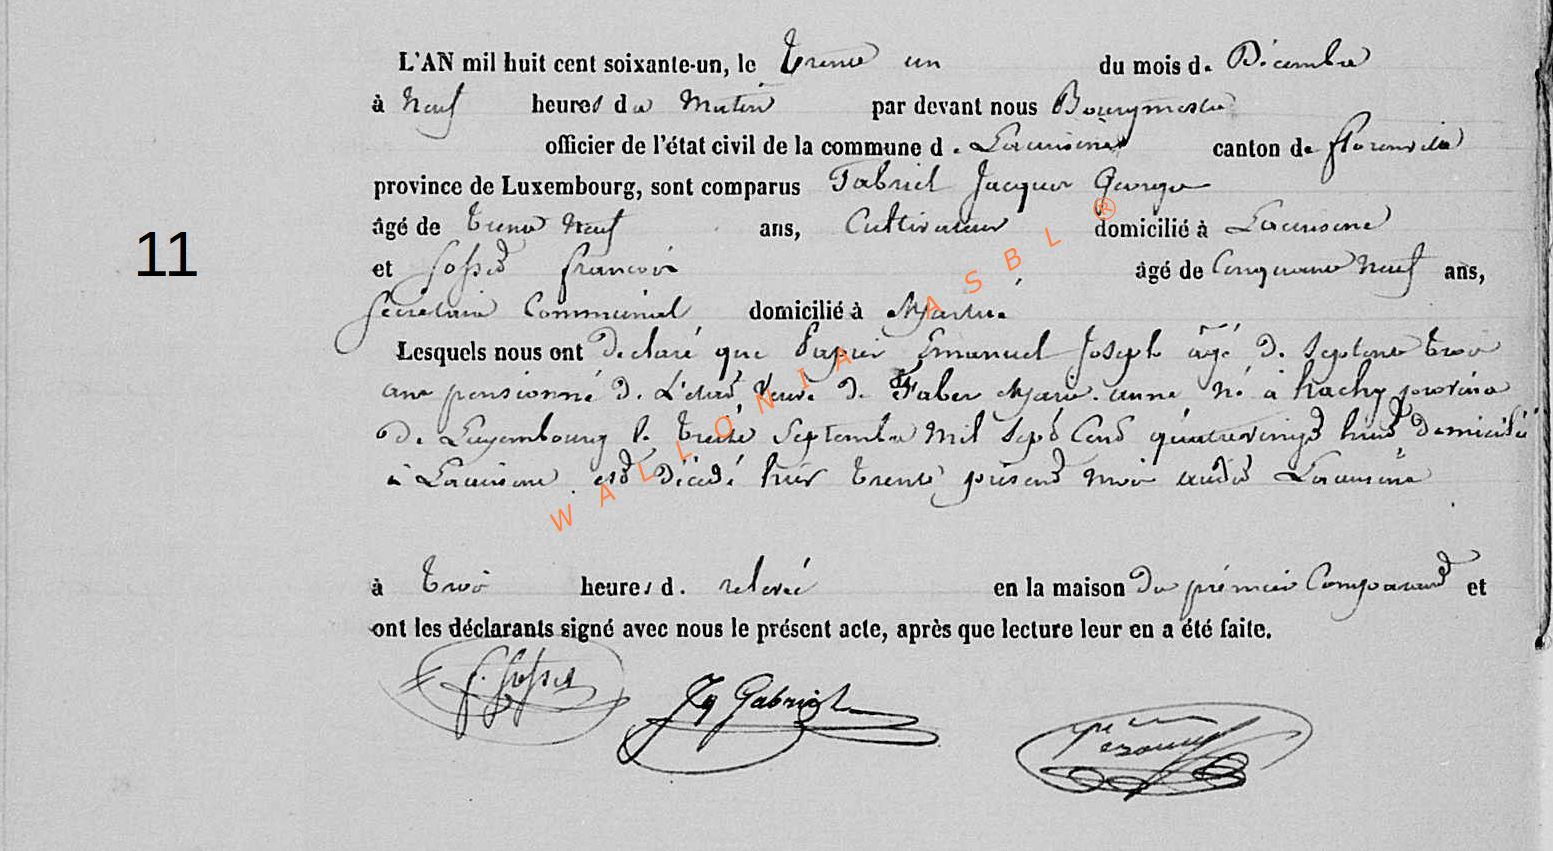 L'AN mil huit cent soixante-un, le trente un du mois de Décembre
à Neuf heures du Matin par devant nous Bourgmestre
officier de l'état civil de la commune de Lacuisine canton de florenville
province de Luxembourg, sont comparus Gabriel Jacques George
âgé de trente Neuf ans, Cultivateur domicilié à Lacuisine
11
et françois âgé de Cinquante Neuf ans,
Secrétaire Communal domicilié à Martué
Lesquels nous ont declaré que Papier Emanuel Joseph âgé de Septente trois
ans pensionné de L'état, Veuve de Faber Marie-anne né à hachy province
de Luxembourg le treize Septembre Mil Sept Cent quatrevingt huit domicilié
à Lacuisine est décédé hier trente présent mois audit Lacuisine
WALLONIA ASBL ®
à trois heures de relevée en la maison du prémier Comparant et
ont les déclarants signé avec nous le présent acte, après que lecture leur en a été faite.
Jq Gabriel